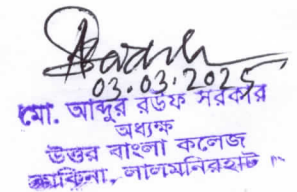 03.03.2025
মো. আব্দুর রউফ সরকার
অধ্যক্ষ
উত্তর বাংলা কলেজ
কাকিনা, লালমনিরহাট ।